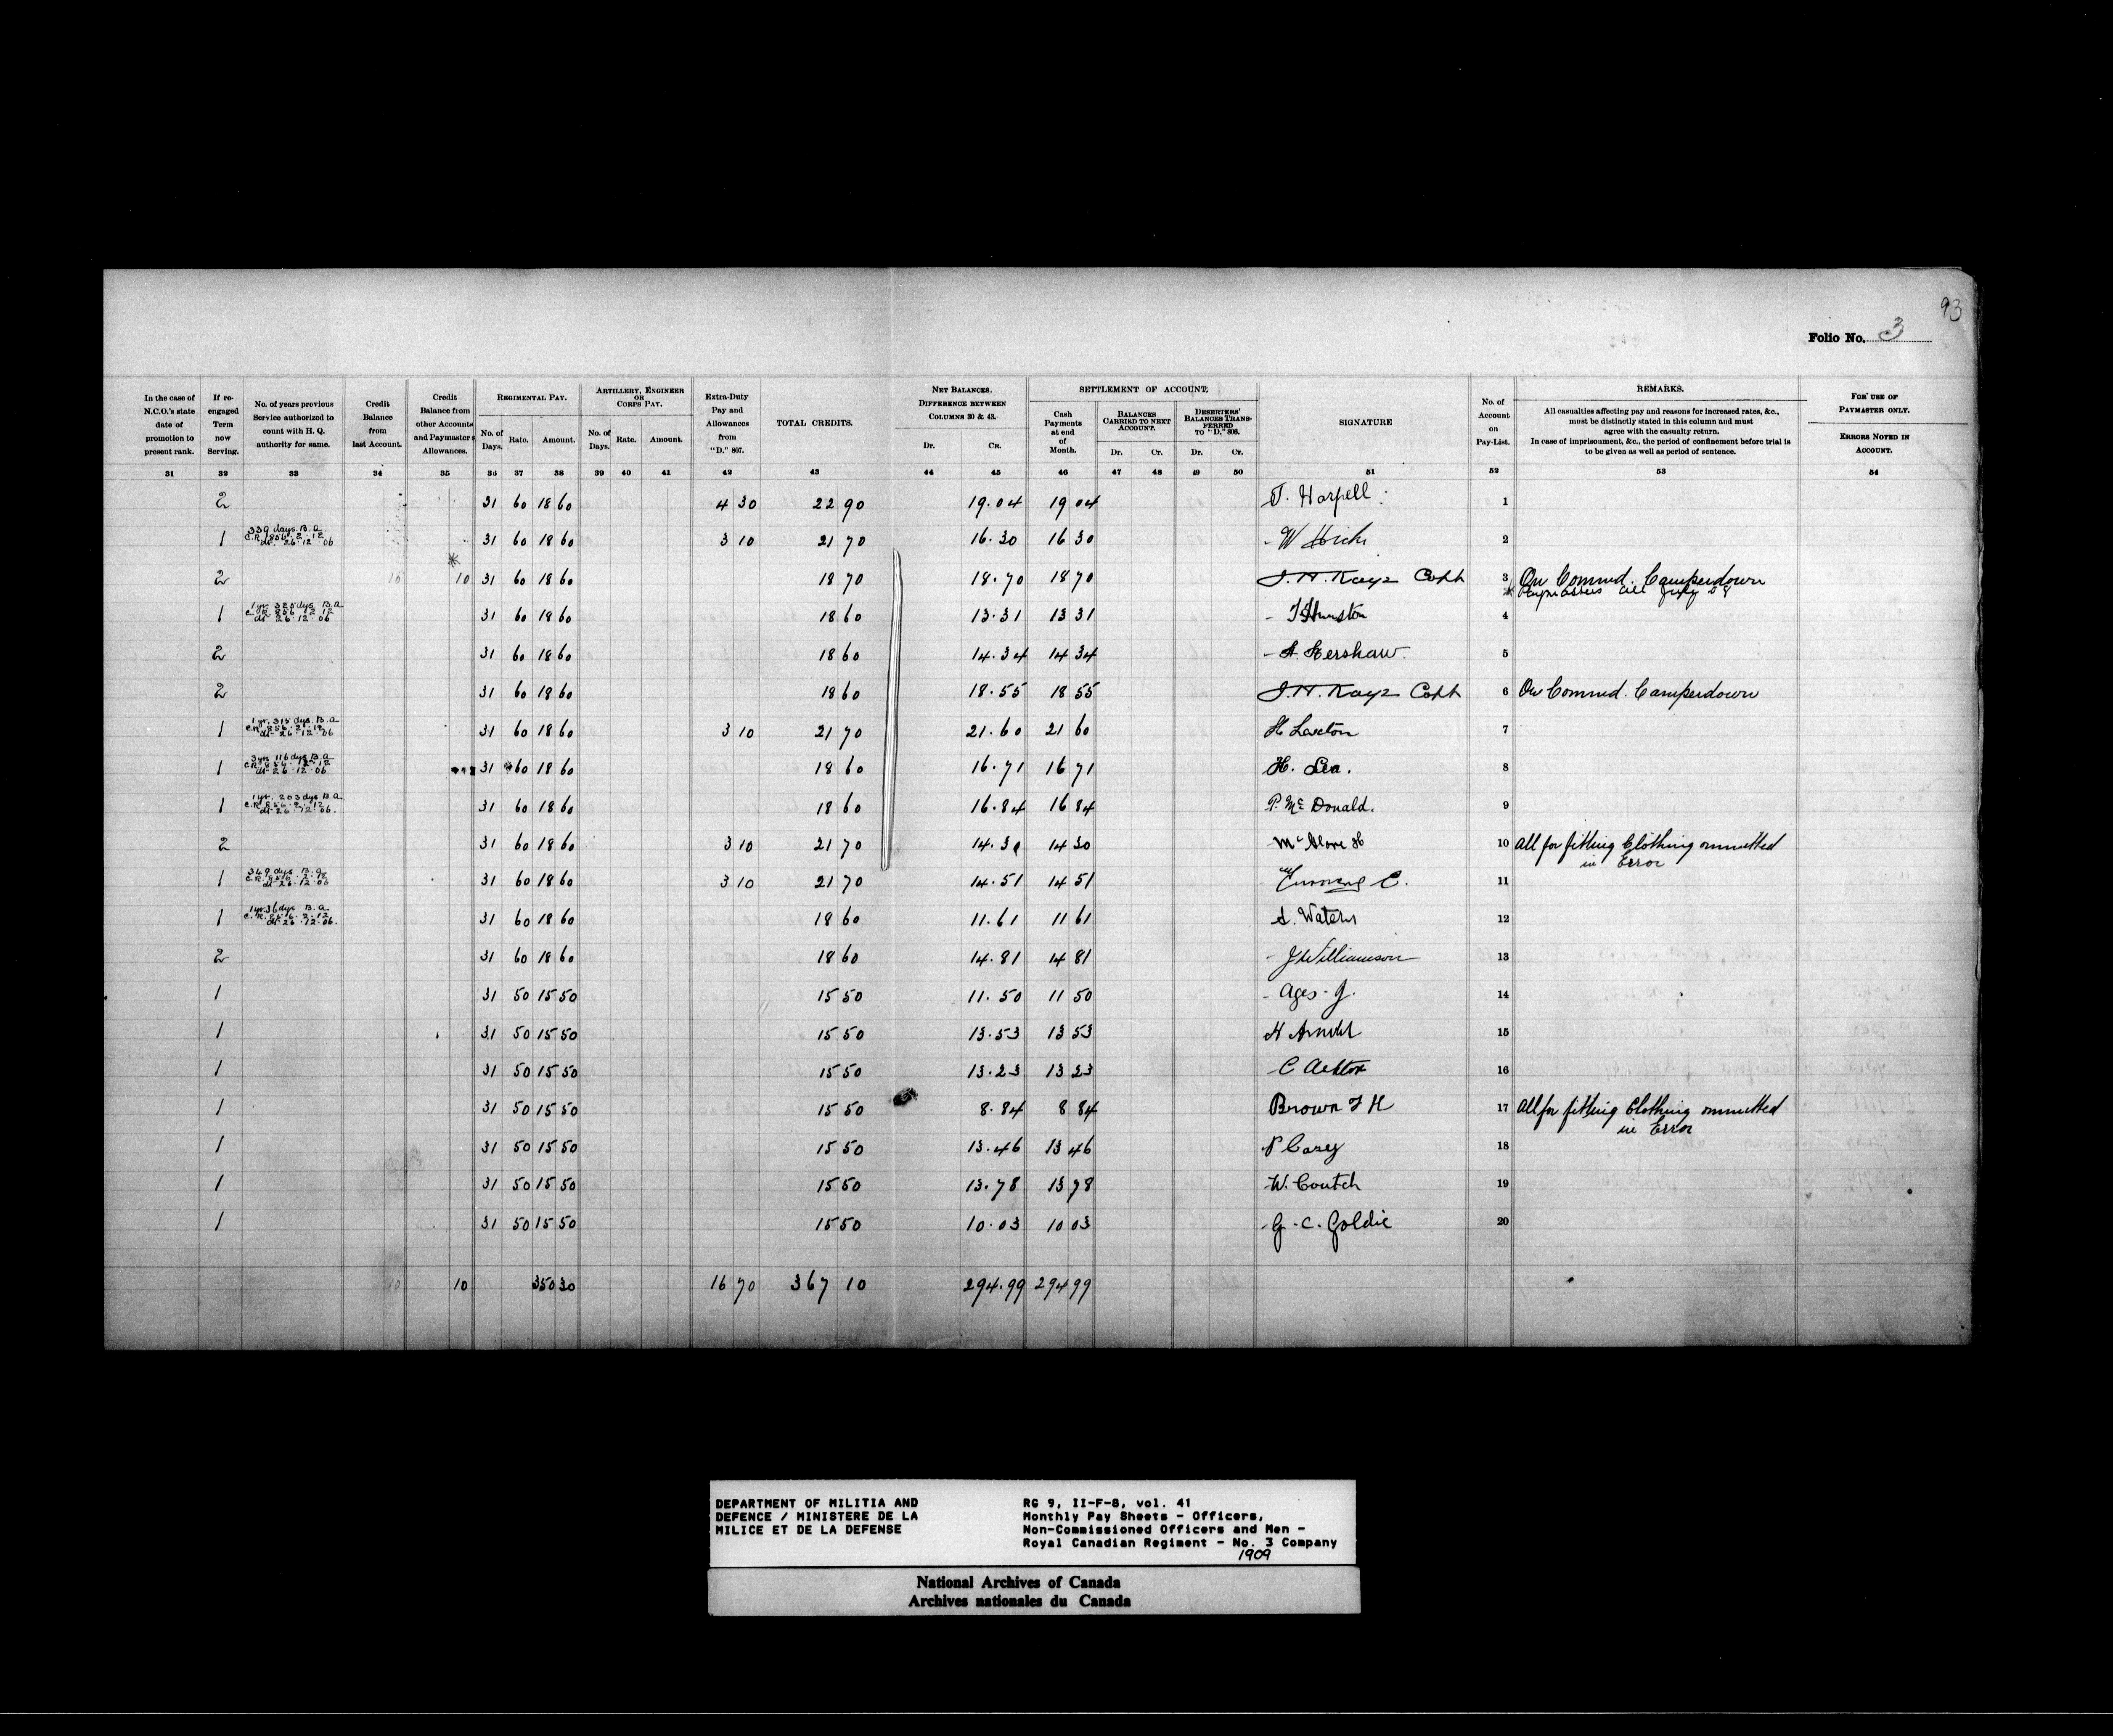 93
Folio No. 3
In the case of N.C.O.'s state date of promotion to present rank.
If re-engaged Term now Serving.
No. of years previous Service authorized to count with H. Q. authority for same.
Credit Balance from last Account.
Credit Balance from other Accounts and Paymasters Allowances.
REGIMENTAL PAY.
No. of Days. Rate. Amount.
ARTILLERY, ENGINEER OR CORPS PAY.
No. of Days. Rate. Amount.
Extra-Duty Pay and Allowances from "D." 807.
TOTAL CREDITS.
NET BALANCES.
DIFFERENCE BETWEEN COLUMNS 30 & 43.
Dr. CR.
SETTLEMENT OF ACCOUNT.
Cash Payments at end of Month.
BALANCES CARRIED TO NEXT ACCOUNT.
Dr. Cr.
DESERTERS' BALANCES TRANSFERRED TO "D." 808.
Dr. Cr.
SIGNATURE
No. of Account on Pay-List.
REMARKS.
All casualties affecting pay and reasons for increased rates, &c., must be distinctly stated in this column and must agree with the casualty return.
In case of imprisonment, &c., the period of confinement before trial is to be given as well as period of sentence.
FOR USE OF PAYMASTER ONLY.
ERRORS NOTED IN ACCOUNT.
31 32 33 34 35 36 37 38 39 40 41 42 43 44 45 46 47 48 49 50 51 52 53 54
2 31 60 18 60 4 30 22 90 19.04 19 04 T. Harpell 1
1 339 days B.a C.R. 856.2.12 dt. 26.12.06 31 60 18 60 3 10 21 70 16.30 16 30 W Hicks 2
2 10 10 31 60 18 60 18 70 18.70 18 70 J.H. Kaye Capt 3 On Commd. Camperdown
1 1 yr. 325 dys B.a dt 26.12.06 31 60 18 60 18 60 13.31 13 31 4
2 31 60 18 60 18 60 14.34 14 34 A. Kershaw. 5
2 31 60 18 60 18 60 18.55 18 55 J.H. Kaye Capt 6 On Commd. Camperdown
1 1 yr. 315 dys. B.a dt 26.12.06 31 60 18 60 3 10 21 70 21.60 21 60 H Laxton 7
1 3 yrs 116 dys B.a dt 26.12.06 31 60 18 60 18 60 16.71 16 71 H. Lea. 8
1 1 yr. 203 dys B.a dt 26.12.06. 31 60 18 60 18 60 16.84 16 84 P. McDonald. 9
2 31 60 18 60 3 10 21 70 14.30 14 30 10 All for fitting Clothing ommitted
in Error
1 349 dys B.a dt 26.12.06 31 60 18 60 3 10 21 70 14.51 14 51 11
1 1 yr 36 dys B.a dt 26.12.06. 31 60 18 60 18 60 11.61 11 61 A. Waters 12
2 31 60 18 60 18 60 14.81 14 81 J Williamson 13
1 31 50 15 50 15 50 11.50 11 50 Ages J. 14
1 31 50 15 50 15 50 13.53 13 53 H Arnold 15
1 31 50 15 50 15 50 13.23 13 23 C Ashton 16
1 31 50 15 50 15 50 8.84 8 84 Brown F H 17 All for fitting Clothing ommitted
in Error
1 31 50 15 50 15 50 13.46 13 46 P Carey 18
1 31 50 15 50 15 50 13.78 13 78 W. Coutch 19
1 31 50 15 50 15 50 10.03 10 03 G. C. Goldie 20
10 10 350 30 16 70 367 10 294.99 294 99
DEPARTMENT OF MILITIA AND
DEFENCE / MINISTERE DE LA
MILICE ET DE LA DEFENSE
RG 9, II-F-8, vol. 41
Monthly Pay Sheets - Officers,
Non-Commissioned Officers and Men -
Royal Canadian Regiment - No. 3 Company
1909
National Archives of Canada
Archives nationales du Canada